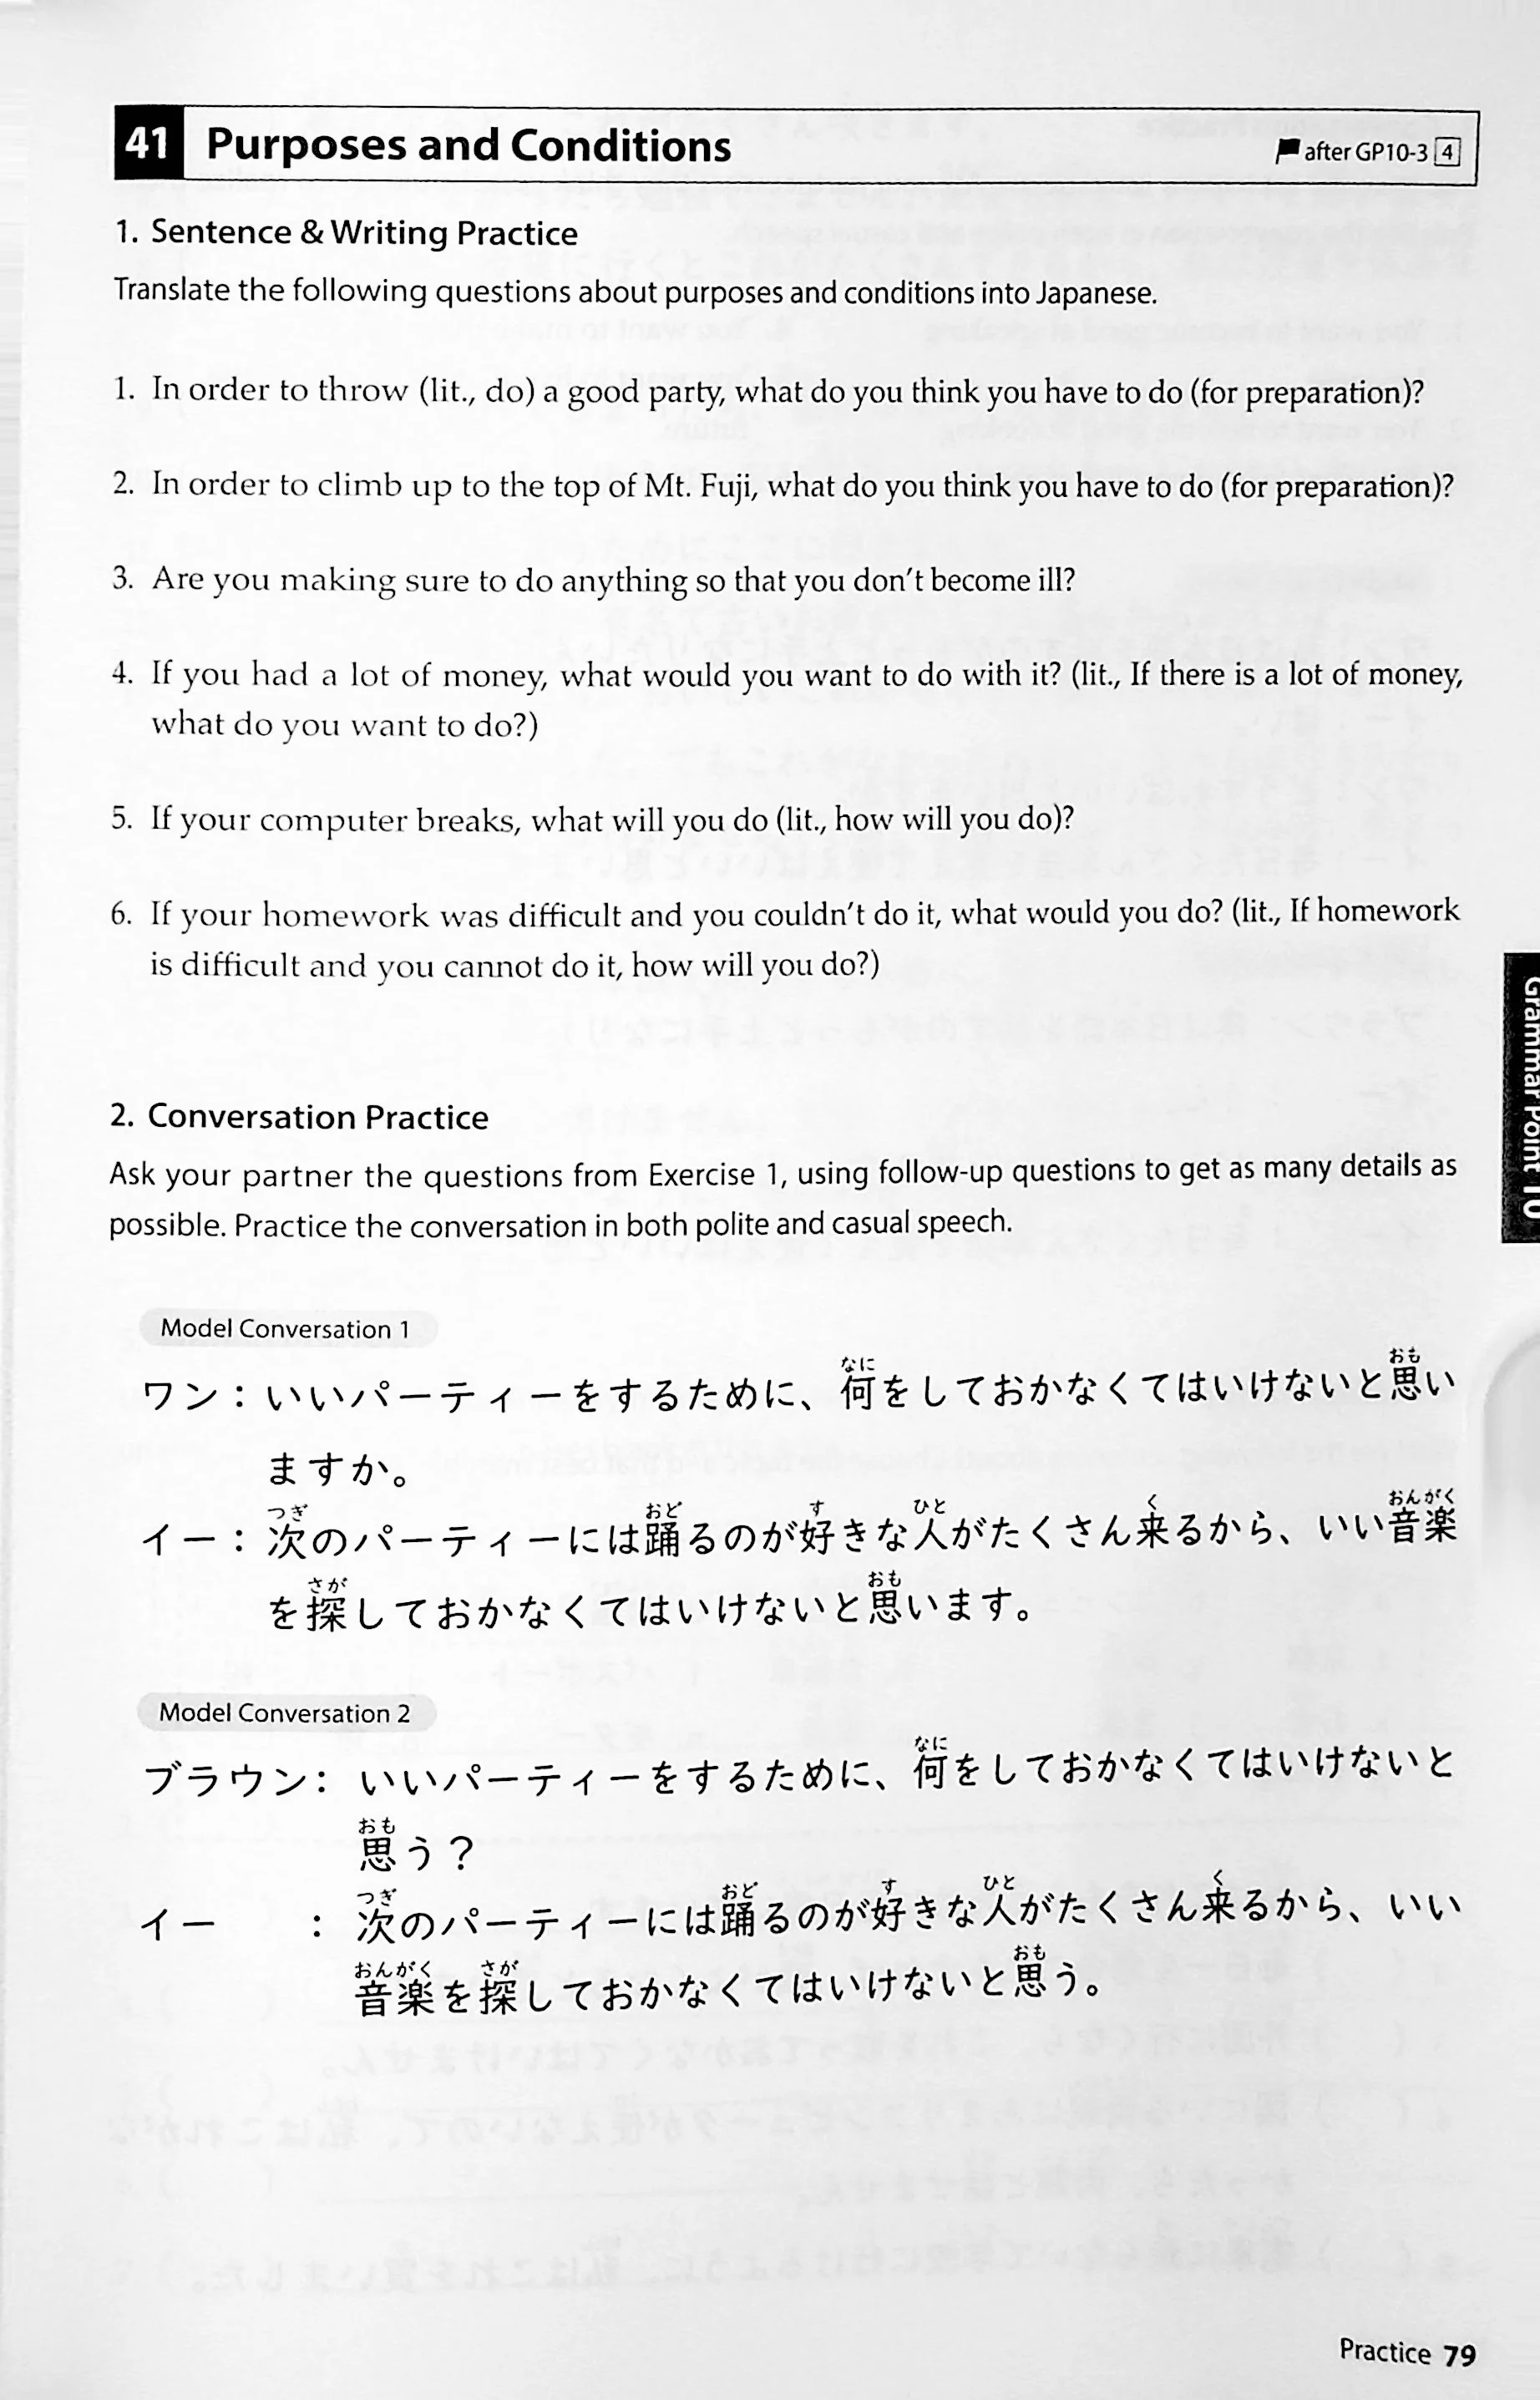 41 Purposes and Conditions after GP10-3 4
1. Sentence & Writing Practice
Translate the following questions about purposes and conditions into Japanese.
1. In order to throw (lit., do) a good party, what do you think you have to do (for preparation)?
2. In order to climb up to the top of Mt. Fuji, what do you think you have to do (for preparation)?
3. Are you making sure to do anything so that you don't become ill?
4. If you had a lot of money, what would you want to do with it? (lit., If there is a lot of money,
what do you want to do?)
5. If your computer breaks, what will you do (lit., how will you do)?
6. If your homework was difficult and you couldn't do it, what would you do? (lit., If homework
is difficult and you cannot do it, how will you do?)
Grammar Point 10
2. Conversation Practice
Ask your partner the questions from Exercise 1, using follow-up questions to get as many details as
possible. Practice the conversation in both polite and casual speech.
Model Conversation 1
なに おも
ワン：いいパーティーをするために、何をしておかなくてはいけないと思い
ますか。
つぎ おど す ひと く おんがく
イー：次のパーティーには踊るのが好きな人がたくさん来るから、いい音楽
さが おも
を探しておかなくてはいけないと思います。
Model Conversation 2
なに
ブラウン：いいパーティーをするために、何をしておかなくてはいけないと
おも
思う？
つぎ おど す ひと く
イー　　：次のパーティーには踊るのが好きな人がたくさん来るから、いい
おんがく さが おも
音楽を探しておかなくてはいけないと思う。
Practice 79